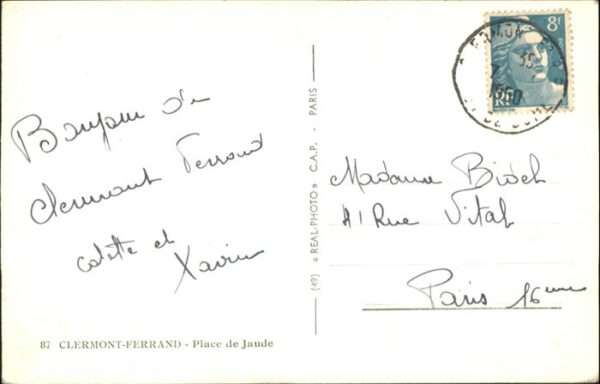 Bonjour de
Clermont Ferrand
Colette et
Xavier
87 CLERMONT-FERRAND - Place de Jaude
(49) « REAL-PHOTO » C.A.P. - PARIS
8F
RF
1950
Madame Bioch
41 Rue Vital
Paris 16eme